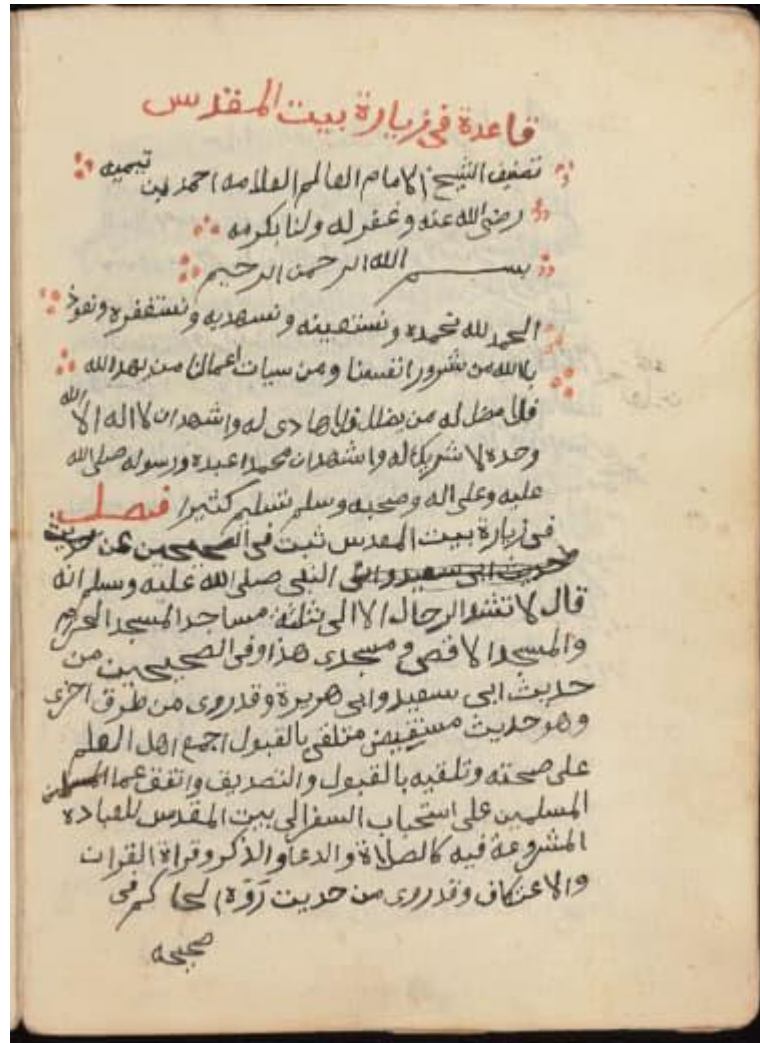 قاعدة في زيارة بيت المقدس
تصنيف الشيخ الامام العالم العلامه احمد ابن تيميه
رضي الله عنه وغفر له ولنا بكرمه
بسم الله الرحمن الرحيم
الحمد لله نحمده ونستعينه ونستهديه ونستغفره ونعوذ
بالله من شرور انفسنا ومن سيات اعمالنا من يهد الله
فلا مضل له من يضلل فلا هادى له واشهد ان لا اله الا الله
وحده لا شريك له واشهد ان محمدا عبده ورسوله صلى الله
عليه وعلى اله وصحبه وسلم تسليم كثيرا فصل
فى زيارة بيت المقدس ثبت فى الصحيحين عن حديث
حديث ابى سعيد النبى صلى الله عليه وسلم انه
قال لا تشد الرحال الا الى ثلثة مساجد المسجد الحرام
والمسجد الاقصى ومسجدى هذا وفى الصحيحين من
حديث ابى سعيد وابى هريرة وقد روى من طرق اخرى
وهو حديث مستفيض متلقى بالقبول اجمع اهل العلم
على صحته وتلقيه بالقبول والتصديق واتفق علما المسلمين
المسلمين على استحباب السفر الى بيت المقدس للعبادة
المشروعة فيه كالصلاة والدعا والذكر وقراة القران
والاعتكاف وقد روى من حديث رَوَه الحاكم فى
صحيحه